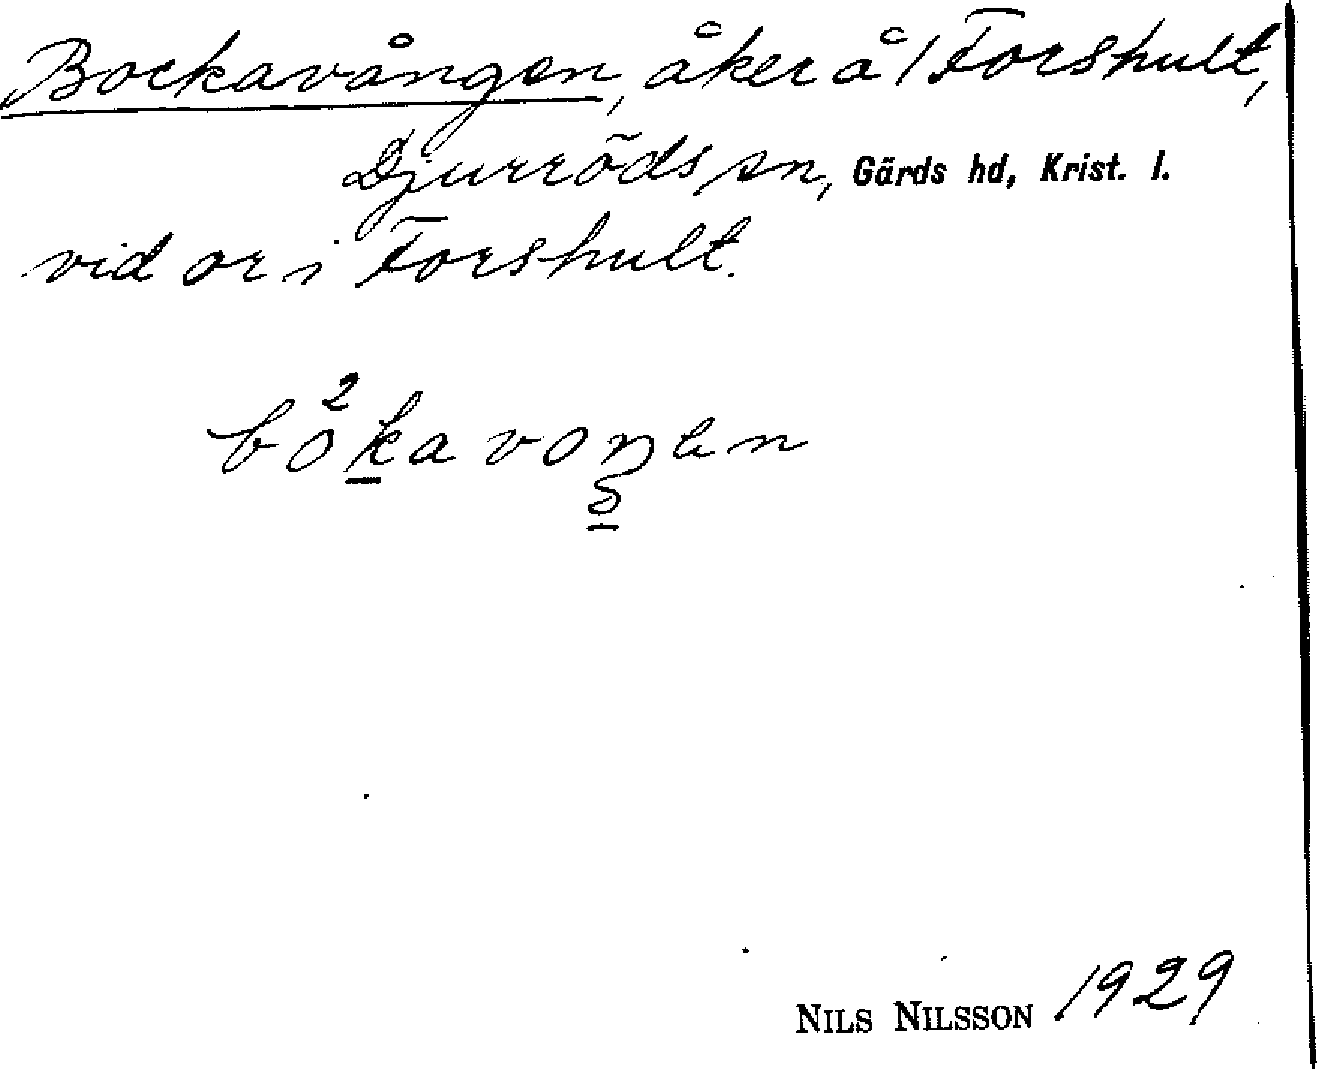 Bockavången, åker å 1 Forshult,
Djurröds sn, Gärds hd, Krist. l.
vid or i Forshult.
NILS NILSSON 1929